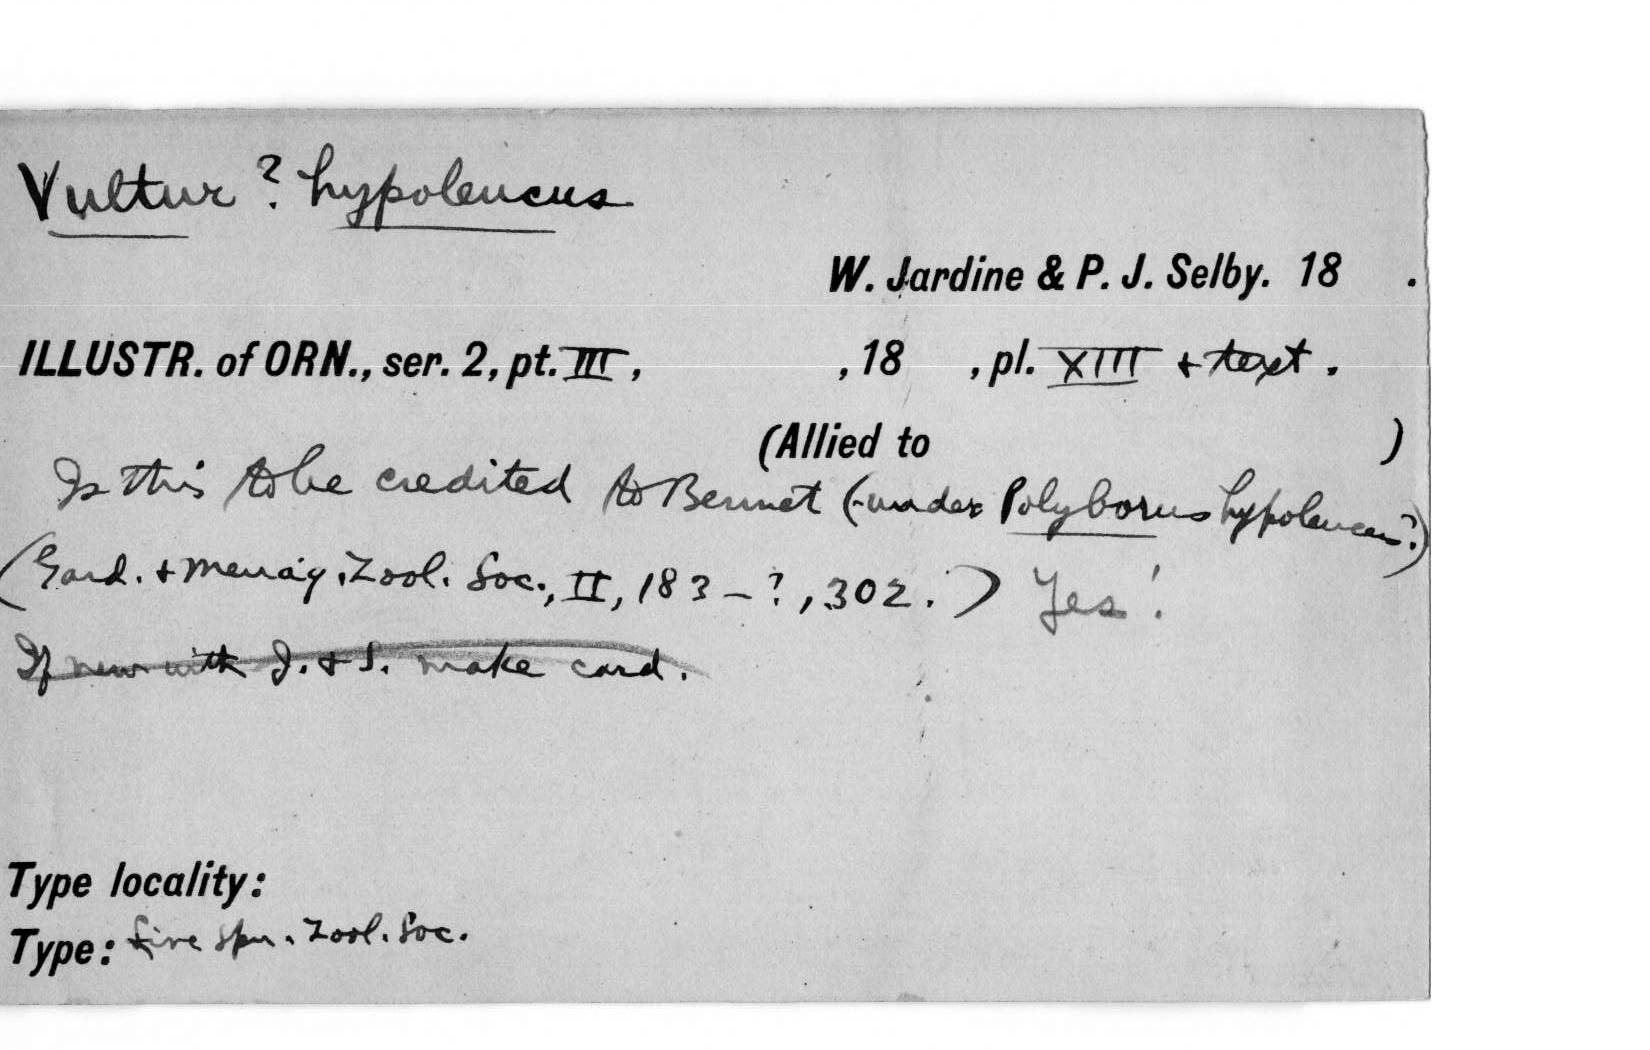 Vultur ? hypoleucus
W. Jardine & P. J. Selby. 18 .
ILLUSTR. of ORN., ser. 2, pt. III, , 18 , pl. XIII + text .
(Allied to )
Is this to be credited to Bennet (-under Polyborus hypoleucus?)
(Gard. + Menag. Zool. Soc., II, 183-?, 302.) Yes!
If new with J. + S. make card.
Type locality:
Type: Live spm. Zool. Soc.